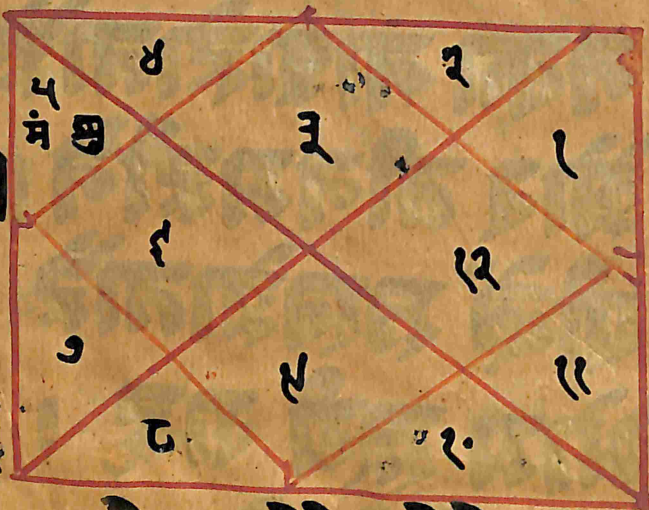 ४
२
५
मं बु
३
१
६
१२
७
९
११
८
१०